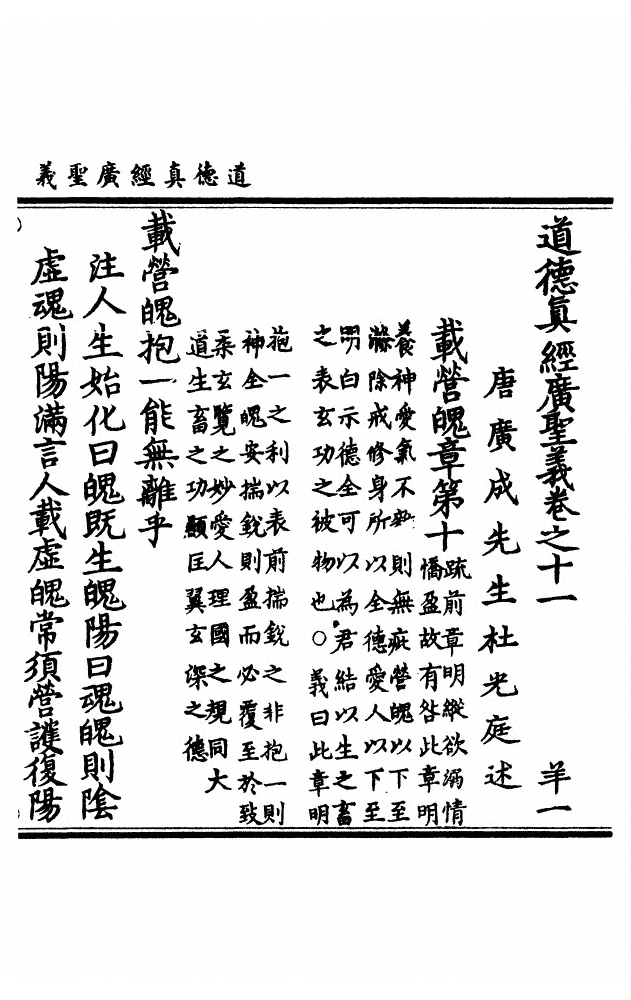 道德真經廣聖義
道德真經廣聖義卷之十一 羊一
唐廣成先生杜光庭述
載營魄章第十
疏前章明縱欲溺情
憍盈故有咎此章明
養神愛氣不虧則無疵營魄以下至
滌除戒修身所以全德愛人以下至
明白示德全可以為君結以生之畜
之表玄功之被物也○義曰此章明
抱一之利以表前揣銳之非抱一則
神全魄安揣銳則盈而必覆至於致
柔玄覽之妙愛人理國之規同大
道生畜之功顯匡翼玄深之德
載營魄抱一能無離乎
注人生始化曰魄既生魄陽曰魂魄則陰
虛魂則陽滿言人載虛魄常須營護復陽